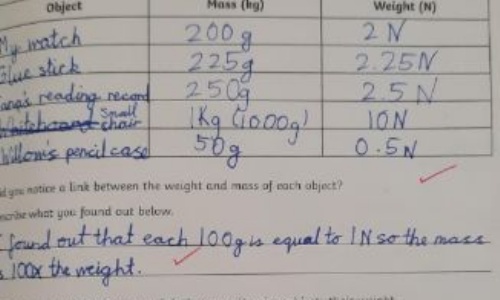 Object Mass (kg) Weight (N)
My watch 200g 2N
Glue stick 225g 2.25N
reading record 250g 2.5N
Small
chair 1Kg (1000g) 10N
Willow's pencil case 50g 0.5N
did you notice a link between the weight and mass of each object?
scribe what you found out below.
found out that each 100g is equal to 1N so the mass
is 100x the weight.